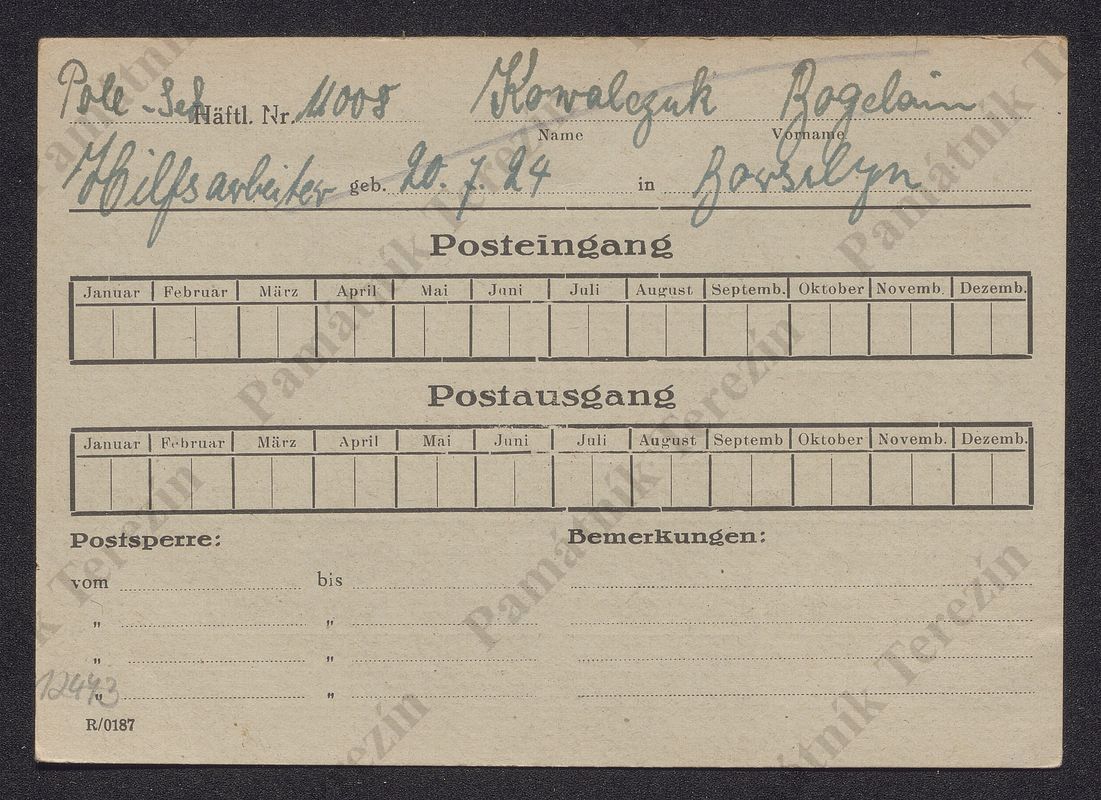 Pole - Sch Häftl. Nr. 11008 Kowalczuk
Name Vorname
Hilfsarbeiter geb. 20. 7. 24 in
Posteingang
Januar Februar März April Mai Juni Juli August Septemb. Oktober Novemb. Dezemb.
Postausgang
Januar Februar März April Mai Juni Juli August Septemb Oktober Novemb. Dezemb.
Postsperre: Bemerkungen:
vom bis
„ „
„ „
„ „
12443
R/0187
Památník Terezín